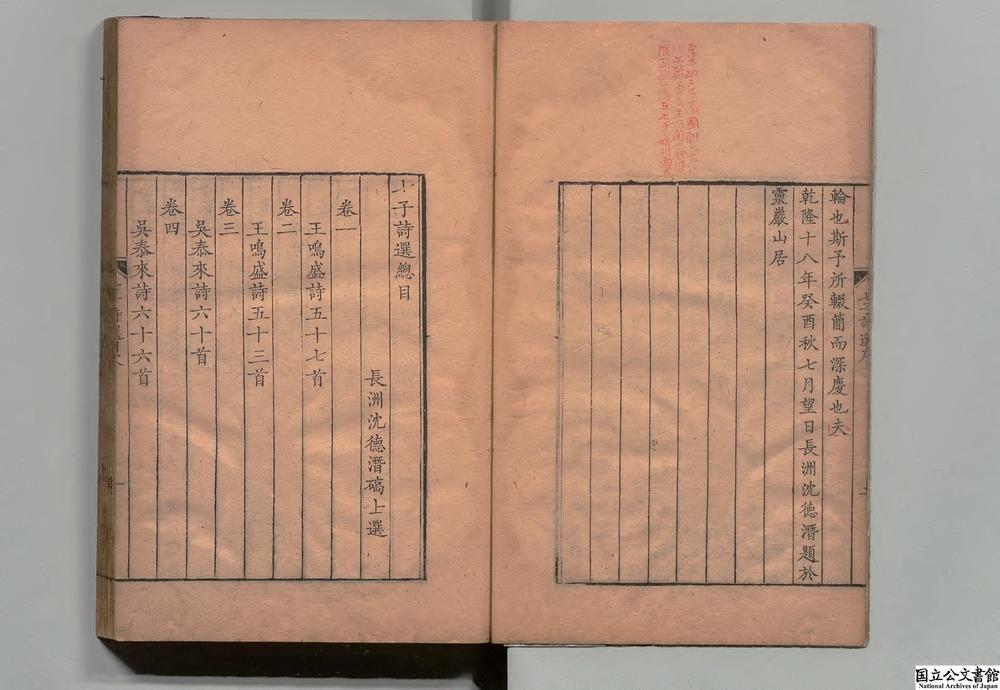 輪也斯予所輟簡而深慶也夫
乾隆十八年癸酉秋七月望日長洲沈德潛題於
靈巖山居
子詩選總目
長洲沈德潛碻上選
卷一
王鳴盛詩五十七首
卷二
王鳴盛詩五十三首
卷三
吳泰來詩六十首
卷四
吳泰來詩六十六首
国立公文書館
National Archives of Japan